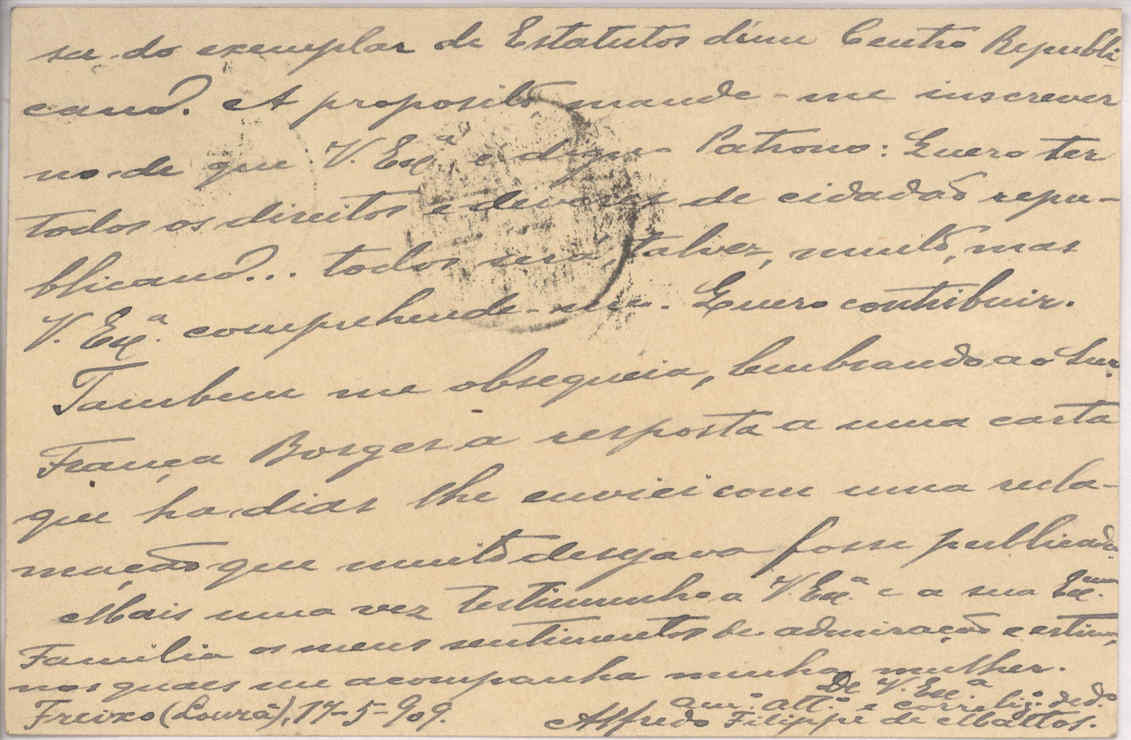 ser do exemplar de Estatutos d'um Centro Republi-
cano. A proposito mande-me inscrever
no de que V. Exª é digno Patrono: Quero ter
todos os direitos e deveres de cidadão repu-
blicano... todos será, talvez, muito, mas
V. Exª comprehende-me. Quero contribuir.
Tambem me obsequeia, lembrando ao Snr.
França Borges a resposta a uma carta
que ha dias lhe enviei com uma recla-
mação que muito desejava fosse publicada.
Mais uma vez testimunho a V. Exª e a sua Exma
Familia os meus sentimentos de admiração e estima,
nos quaes me acompanha minha mulher.
De V. Exª
Freixo (Louzã), 17-5-909. am.º att.º e correlig.º ded.º
Alfredo Filippe de Mattos.